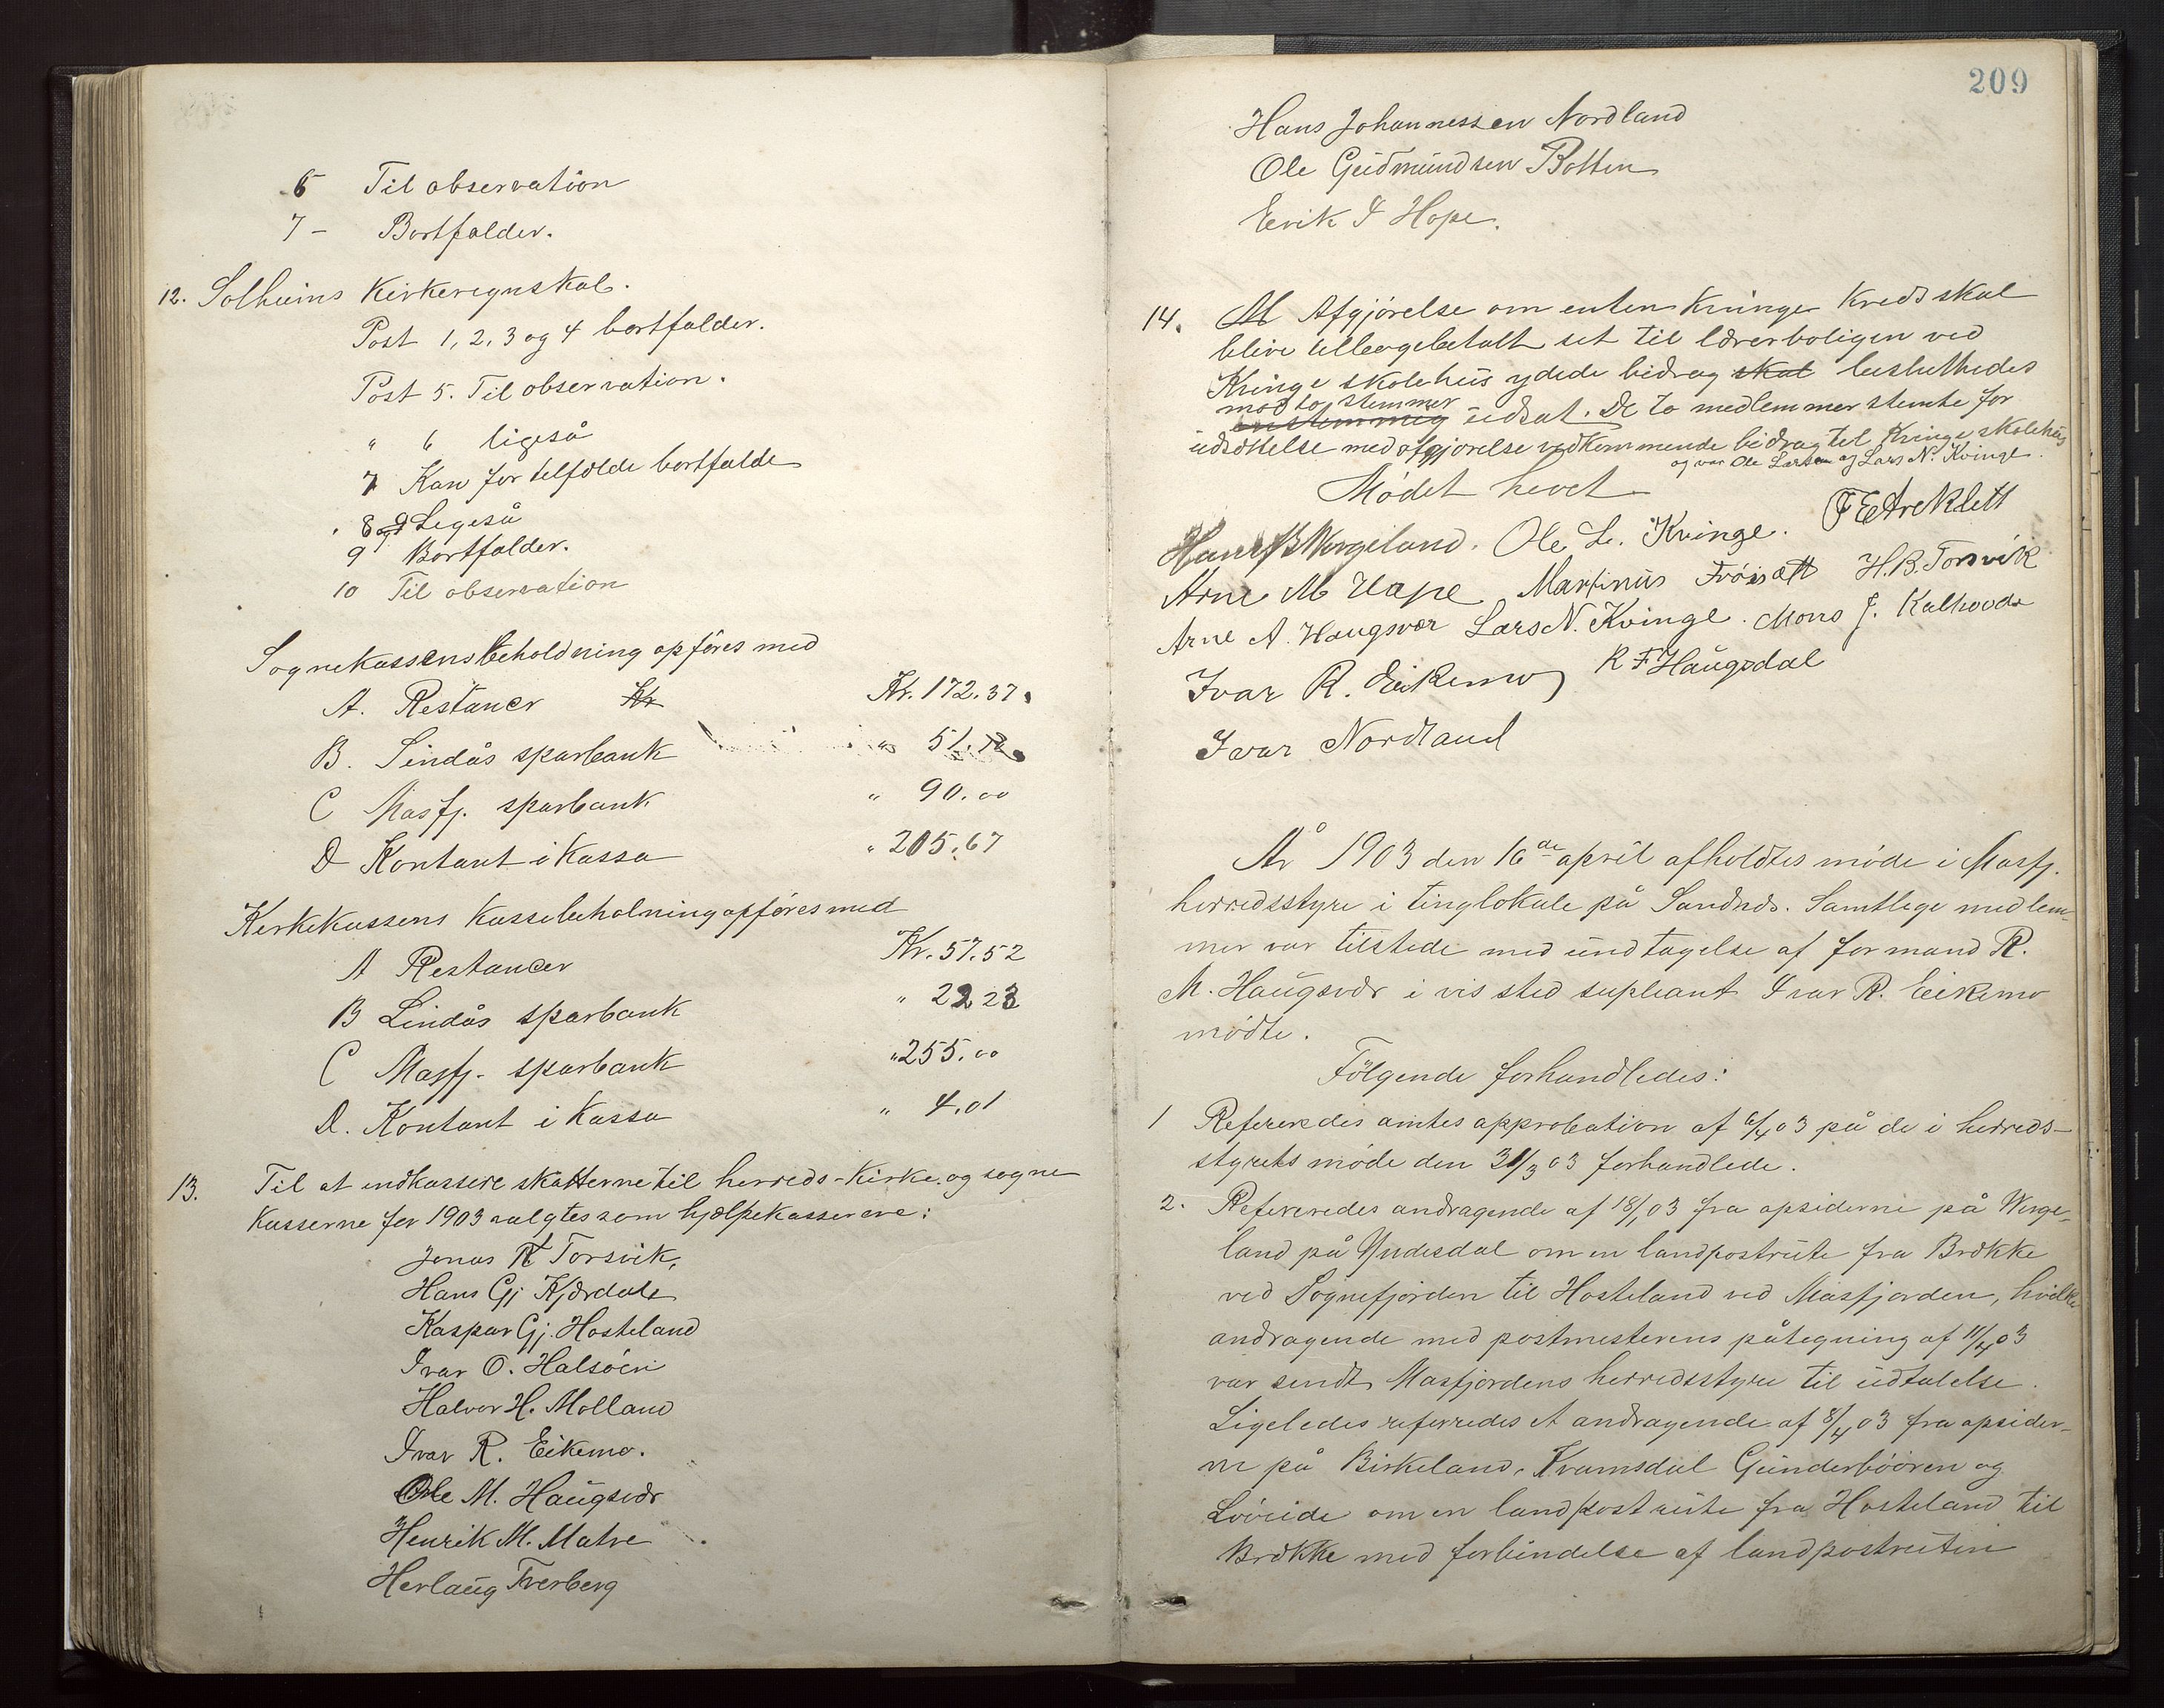 6 Til observation
7 - Bortfalder.
12. Solheims Kirkeregnskab.
Post 1, 2, 3 og 4 bortfalder.
Post 5. Til observation.
" 6 ligeså
7 Kan for tilfælde bortfalde
" 8 Ligeså
9 Bortfalder.
10 Til observation
Sognekassens beholdning opføres med
A. Restancer Kr Kr. 172.37
B. Lindås sparbank " 51.12
C Masfj. sparbank " 90.00
D Kontant i Kassa " 205.67
Kirkekassens Kassebeholning opføres med
A Restancer Kr. 57.52
B Lindås sparbank " 22 23
C Masfj. sparbank " 255.00
D. Kontant i Kassa " 4.01
13. Til at indkassere skatterne til herreds- Kirke og sogne
Kasserne for 1903 valgtes som hjælpekasserere:
Jonas N Torsvik,
Hans Gj Kjærdale
Kaspar Gj. Hosteland
Ivar O. Halsöen
Halvor H. Molland
Ivar R. Eikemo.
Ole M. Haugsvær
Henrik M. Matre
Herlaug Tverberg
209
Hans Johannessen Nordland
Ole Gudmundsen Botten
Eerik I Hope.
14. Afgjörelse om enten Kvinge Kreds skal
blive tilbagebetalt set til lærerboligen ved
Kvinge skolehus ydede bidrag skal besluttedes
mod to stemmer
enstemmig udsat. De to medlemmer stemte for
udsættelse med afgjörelse vedkommende bidrag til Kvinge skolehus
og var Ole Larsen og Lars N. Kvinge.
Mödet hevet
Hans B Wergeland. Ole L. Kvinge. F E Areklett
Arne M Hope Martinus Fröisætt H. B. Torsvik
Arne A. Haugsvær Lars N. Kvinge. Mons J. Kalhovde
Ivar R. Eikemo R F Haugsdal
Ivar Nordland
År 1903 den 16de april afholdtes möde i Masfj.
herredsstyre i tinglokale på Sandnæs. Samtlege medlem-
mer var tilstede med undtagelse af formand R.
M. Haugsvær i vis sted supleant Ivar R. Eikemo
mödte.
Fölgende forhandledes:
1 Refereredes amtes approbation af 6/4 03 på de i herreds-
styrets möde den 31/3 03 forhandlede.
2. Refereredes andragende af 18/1 03 fra opsiderne på Werge-
land på Yndesdal om en landpostrute fra Brække
ved Sognefjorden til Hosteland ved Masfjorden, hvilke
andragende med postmesterens påtegning af 11/4 03
var sendt Masfjordens herredsstyre til udtalelse.
Ligeledes referredes et andragende af 8/4 03 fra opsider-
ne på Birkeland, Kvamsdal Gunderbööen og
Löveide om en landpostrute fra Hosteland til
Brække med forbindelse af landpostrutin